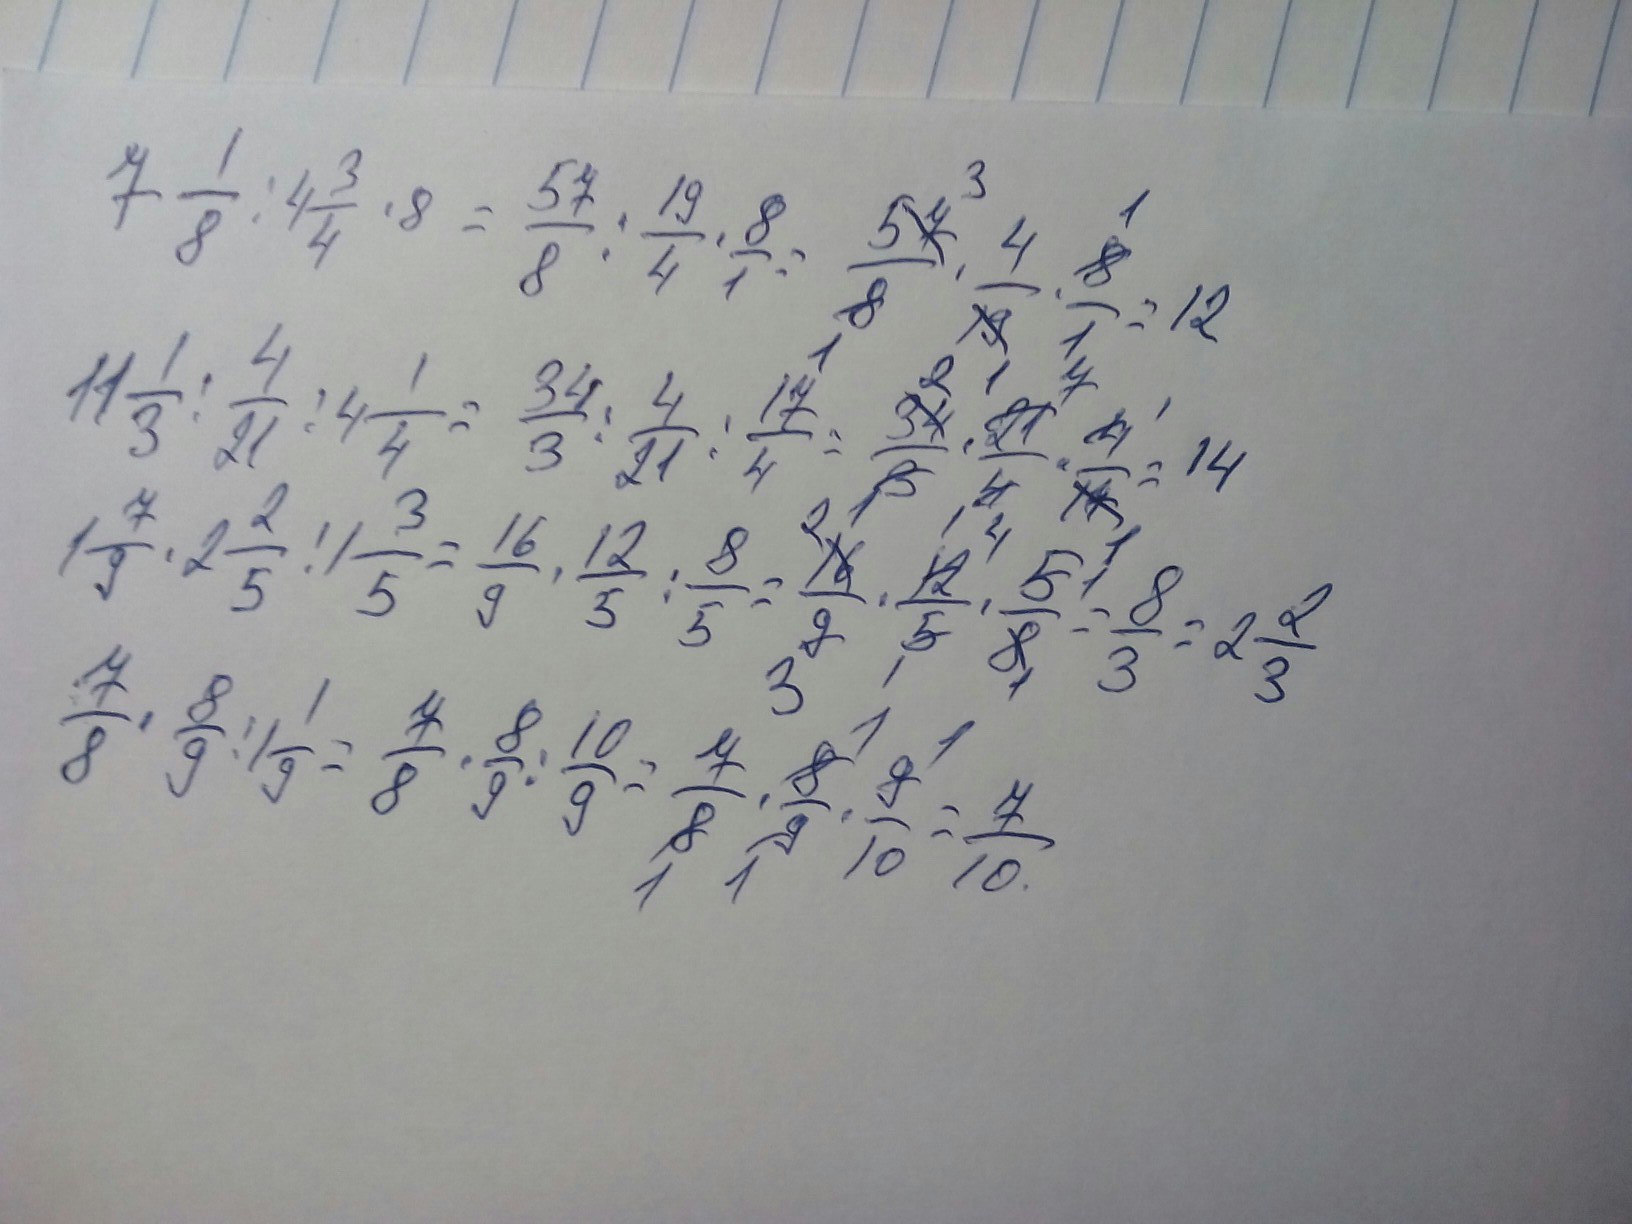 7 1/8 : 4 3/4 · 8 = 57/8 : 19/4 · 8/1 = 57/8 · 4/19 · 8/1 = 12 (3, 1, 1)
11 1/3 : 4/21 : 4 1/4 = 34/3 : 4/21 : 17/4 = 34/3 · 21/4 · 4/17 = 14 (2, 1, 7, 1, 1, 1)
1 7/9 · 2 2/5 : 1 3/5 = 16/9 · 12/5 : 8/5 = 16/9 · 12/5 · 5/8 = 8/3 = 2 2/3 (2, 4, 1, 1, 3, 1, 1)
7/8 · 8/9 : 1 1/9 = 7/8 · 8/9 : 10/9 = 7/8 · 8/9 · 9/10 = 7/10. (1, 1, 1, 1)